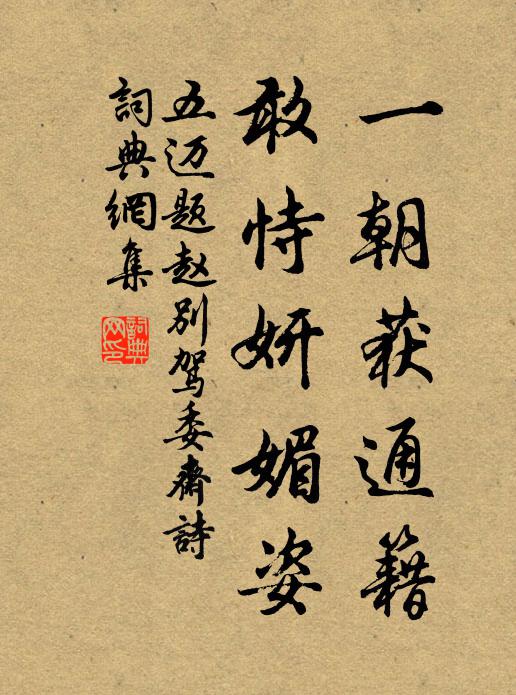 一朝获通籍
敢恃妍媚姿
五迈题赵别驾委齋詩
詞典網集
詞典网印